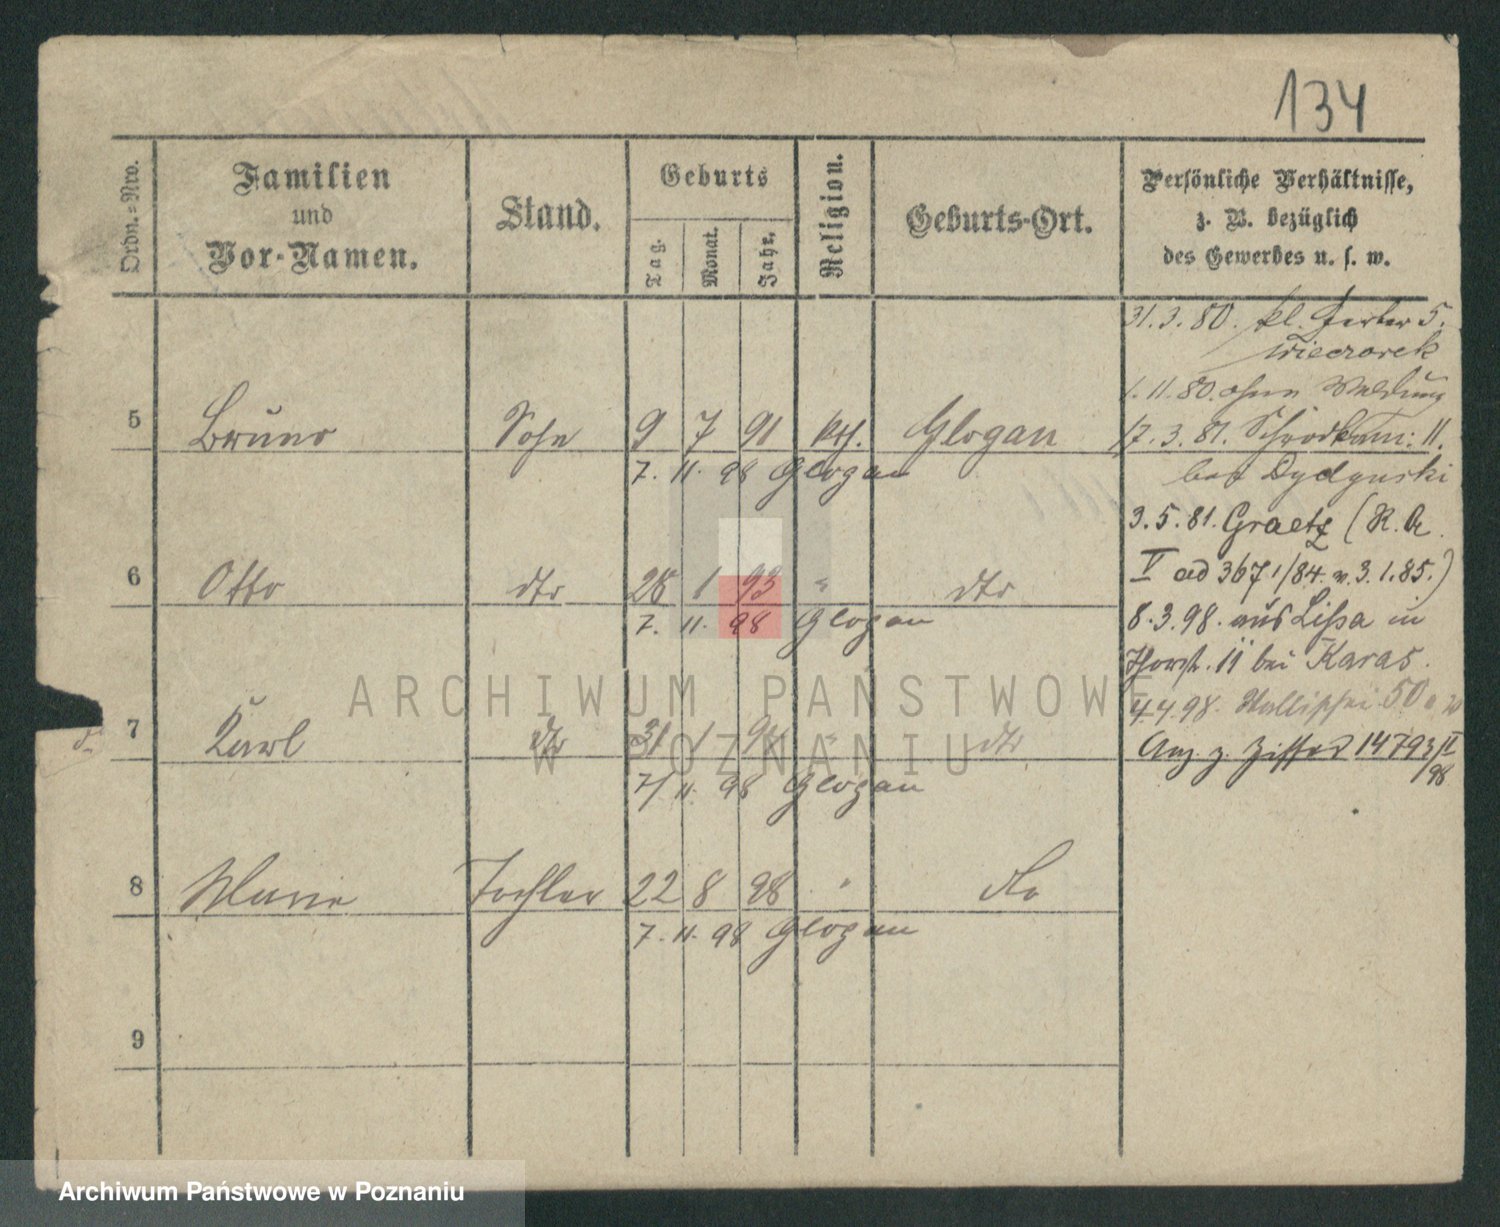 134
Ordn.=Nro.
Familien
und
Vor-Namen.
Stand.
Geburts
Tag.
Monat.
Jahr.
Religion.
Geburts-Ort.
Persönliche Verhältnisse,
z. B. bezüglich
des Gewerbes u. s. w.
31.3.80. kl. Gerber 5.
Wieczorek
1.11.80. ohne Meldung
5 Bruno Sohn 9 7 91 kth. Glogan
17.3.81. 11.
7. 11. 98 Glogan
bei Dydynski
3.5.81. Graetz (R. A.
6 Otto dto 28 1 93 " dto
V ad 3671/84. v. 3.1.85.)
7. 11. 98 Glogan
8.3.98. aus Lissa in
11 bei Karas.
4.4.98. 50
7 Karl dto 31 1 " dto
Anz. z. Ziffer 14793 II/98
7. 11. 98 Glogan
8 Marie Tochter 22 8 98 " dto
7. 11. 98 Glogan
9
ARCHIWUM PAŃSTWOWE
W POZNANIU
Archiwum Państwowe w Poznaniu